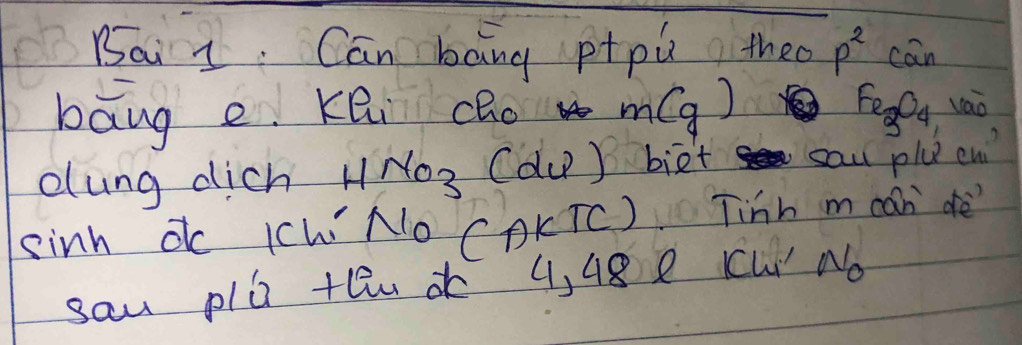 Bài 1 : Cân bằng ptpứ theo p² cân
bằng e. Khi cho m(g) Fe₃O₄ vào
dung dịch HNO₃ (dư) biết sau pứ chỉ
sinh đc khí NO (ĐKTC). Tính m cần để
sau pứ thu đc 4,48 l khí NO